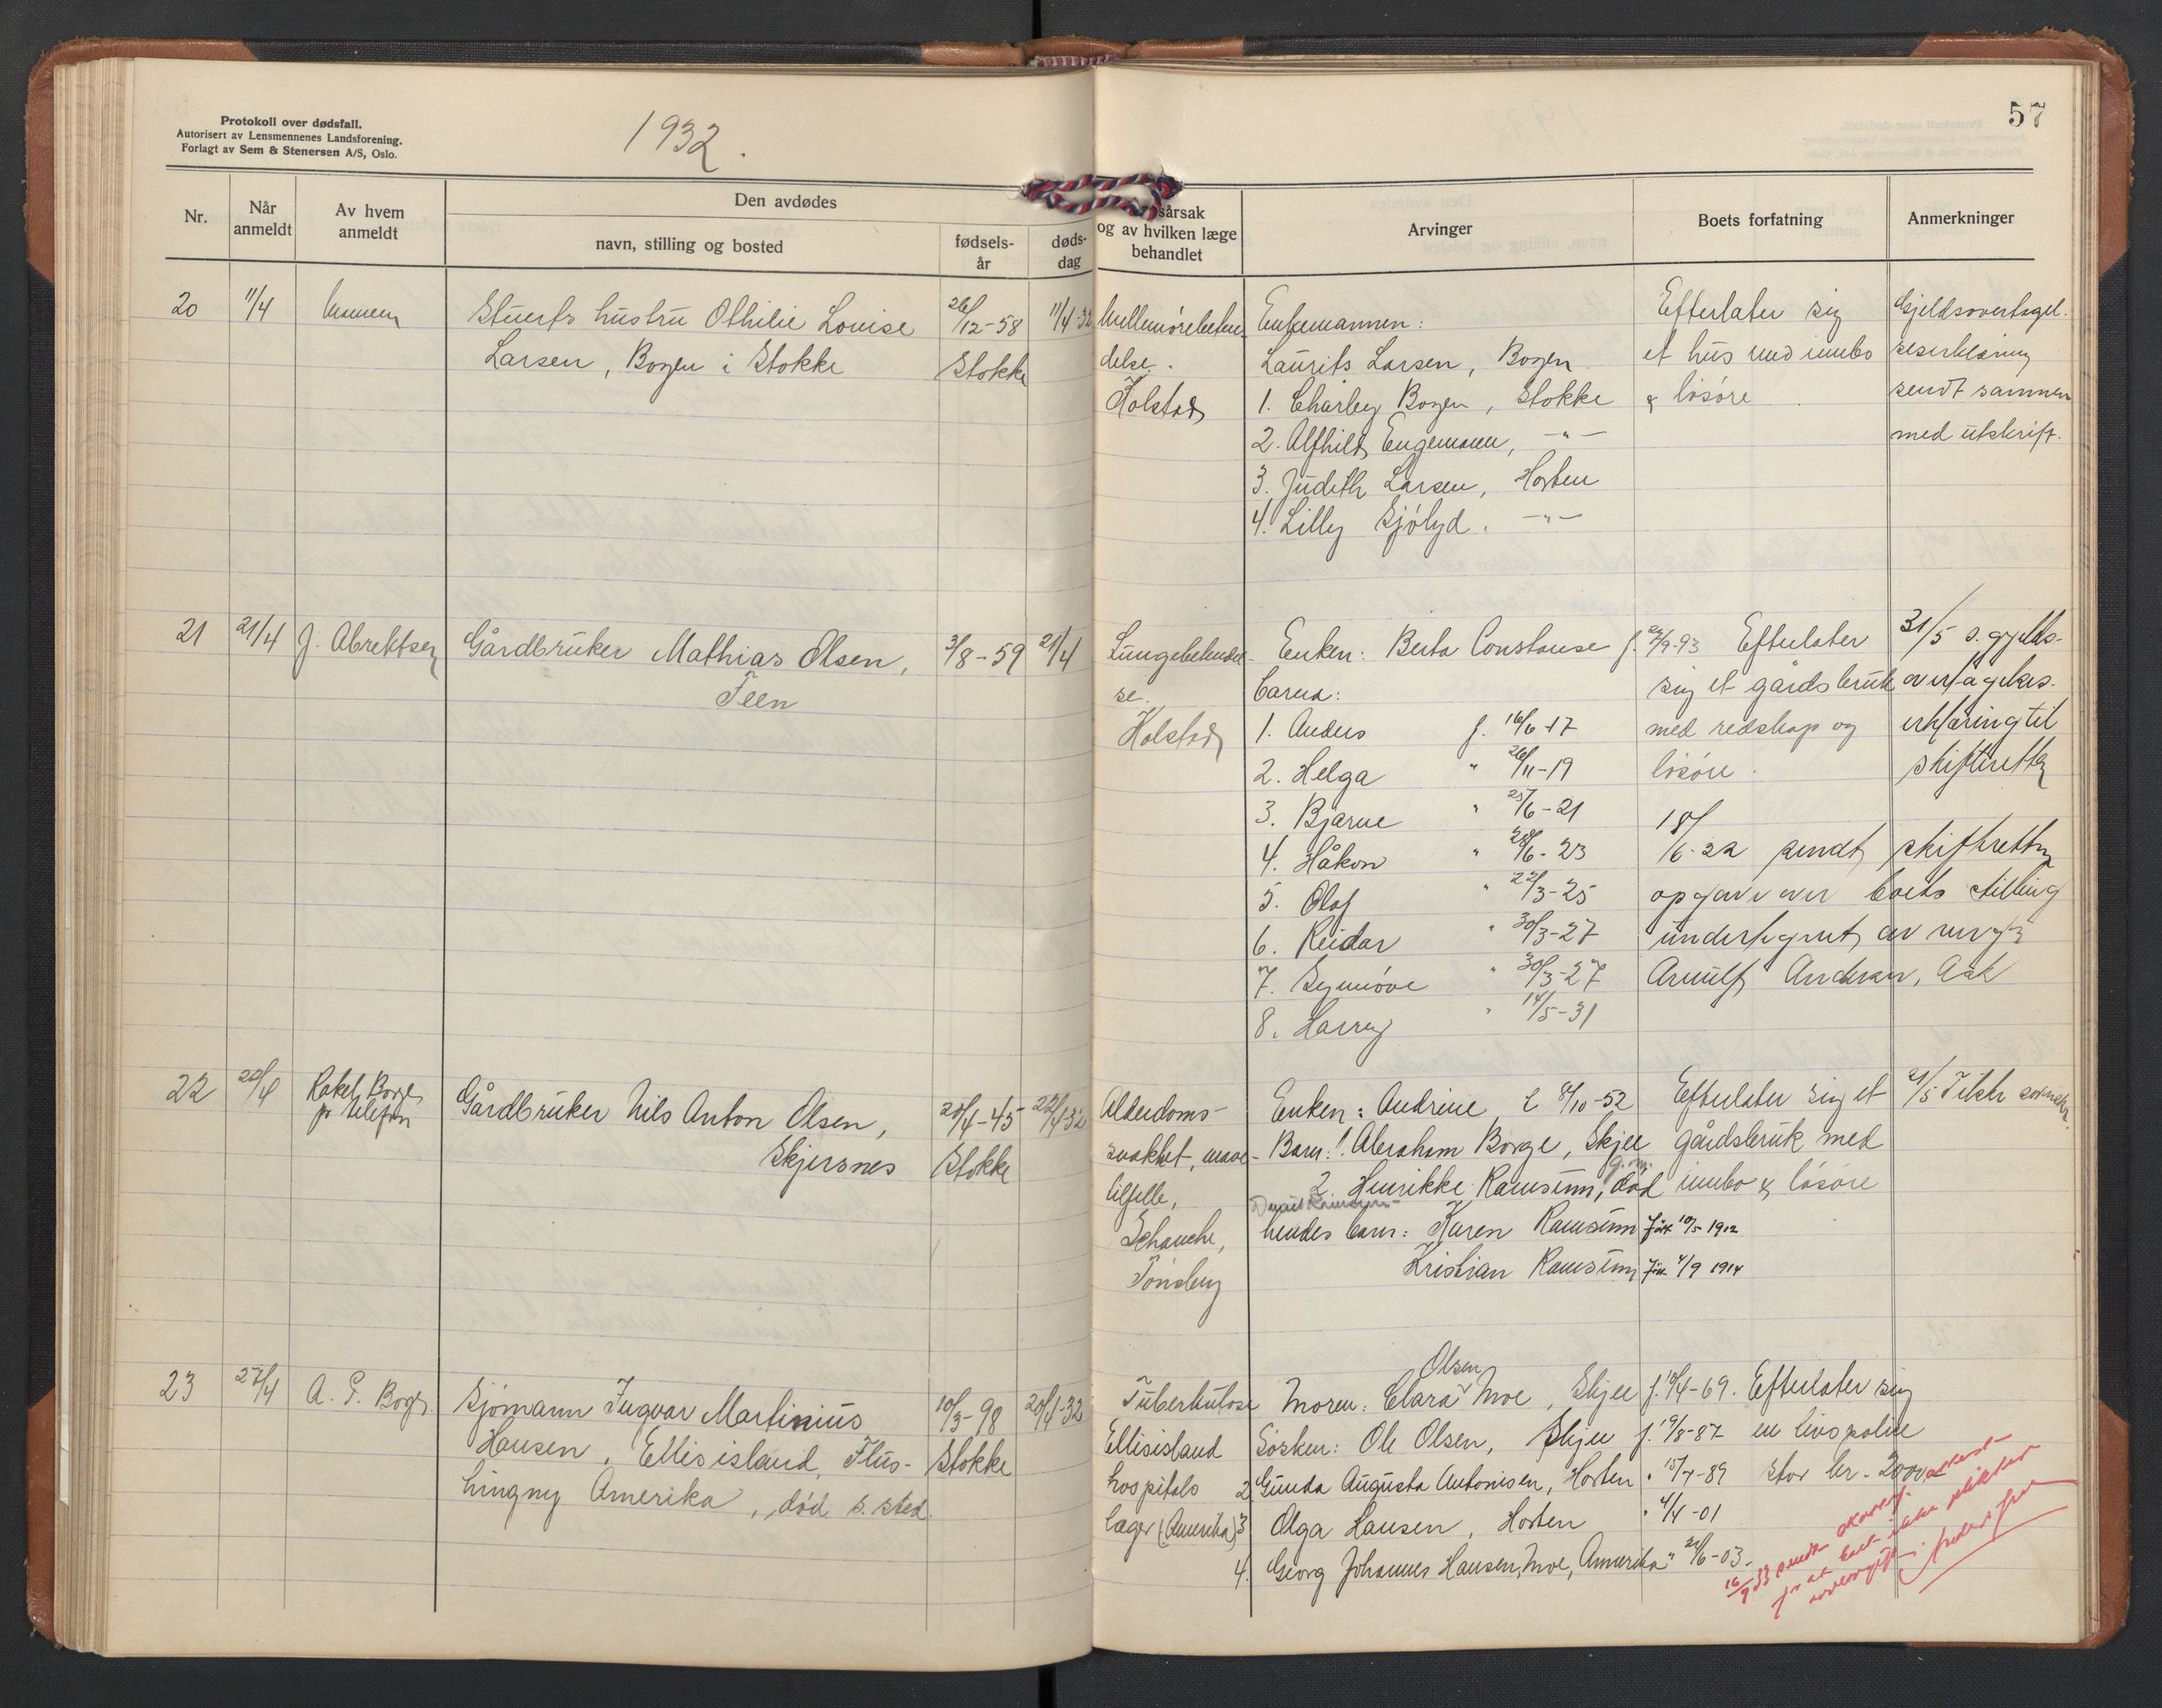 Protokoll over dødsfall.
Autorisert av Lensmennenes Landsforening.
Forlagt av Sem & Stenersen A/S, Oslo.
1932.
57
Nr.
Når anmeldt
Av hvem anmeldt
Den avdødes
navn, stilling og bosted
fødsels-år
døds-dag
sårsak
og av hvilken læge
behandlet
Arvinger
Boets forfatning
Anmerkninger
20 11/4 Stuerts hustru Othilie Louise 26/12-58 11/4-32
Larsen, Bogen i Stokke Stokke
delse.
Holstad
Enkemannen:
Laurits Larsen, Bogen
1. Charley Bogen, Stokke
2. Alfhild Engemann, -"-
3. Judith Larsen, Horten
4. Lilly Sjølyd. -"-
Efterlater sig
et hus med innbo
& løsøre
Gjeldsovertagel-
seserklæring
sendt sammen
med utskrift.
21 21/4 J. Abrektsen Gårdbruker Mathias Olsen, 3/8-59 21/4
Feen
Lungebetendel-
se.
Holstad
Enken: Berta Constanse f. 2/9-93
barna:
1. Anders f. 16/6-17
2. Helga " 26/11-19
3. Bjarne " 25/6-21
4. Håkon " 28/6-23
5. Olaf " 22/3-25
6. Reidar " 30/3-27
7. Synnøve " 30/3-27
8. Harry " 14/5-31
Efterlater
sig et gårdsbruk
med redskap og
løsøre.
31/5 s. gjelds-
overtagelses-
erklæring til
skifteretten
18/6-32 sendt skifteretten
opgave over boets stilling
undertegnet av verge
Arnulf Andersen, Ask
22 22/4 Rakel Borge
pr telefon
Gårdbruker Nils Anton Olsen, 28/4-45 22/4 32
Skjersnes Stokke
Alderdoms-
svakhet, mave-
tilfelle,
Schanche,
Tönsberg
Enken: Andrine f. 8/10-52
Barn: 1. Abraham Borge, Skjee
2. Henrikke Ramsum, død
hendes barn: Karen Ramsum født 10/5 1912
Kristian Ramsum født 4/9 1914
Efterlater sig et
gårdsbruk med
innbo & løsøre
21/5
23 27/4 A. G. Boge Sjømann Ingvar Martinius 10/3-98 20/4-32
Hansen, Ellisisland, Flus- Stokke
hingny Amerika, død s. sted.
Tuberkulose
Ellisisland
hospitals
læger (Amerika)
Olsen
Moren: Clara Moe, Skjee f. 19/4-69.
Søsken: Ole Olsen, Skjee f. 19/8-87
2. Gunda Augusta Antonisen, Horten " 15/7-89
3 Olga Hansen, Horten " 4/4-01
4. Georg Johannes Hansen Moe, Amerika " 21/6-03.
Efterlater sig
en livspolise
stor kr. 2000
16/9 33 sendt
for at boet ikke